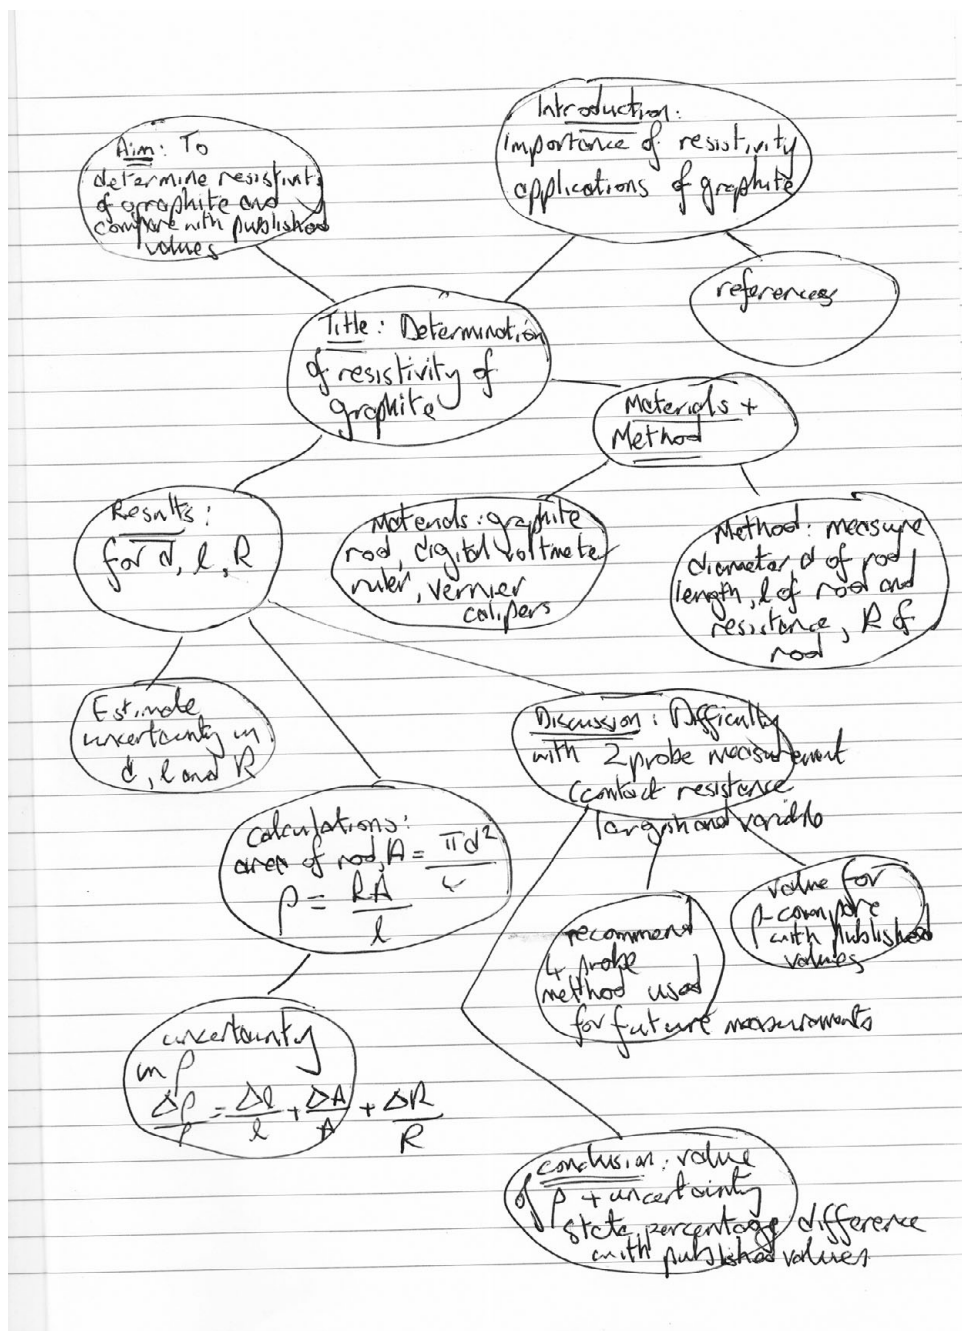 Aim: To
determine resistivity
of graphite and
compare with published
values
Introduction:
importance of resistivity
applications of graphite
references
Title: Determination
of resistivity of
graphite
Materials +
Method
Results:
for d, l, R
Materials: graphite
rod, digital voltmeter
ruler, vernier
calipers
Method: measure
diameter, d of rod
length, l of rod and
resistance, R of
rod
Estimate
uncertainty in
d, l and R
Discussion: Difficulty
with 2 probe measurement
(contact resistance
largish and variable
calculations:
area of rod, A = πd²/4
ρ = RA/l
value for
ρ - compare
with published
values
recommend
4 probe
method used
for future measurements
uncertainty
in ρ
Δρ/ρ = Δl/l + ΔA/A + ΔR/R
conclusion: value
of ρ + uncertainty
state percentage difference
with published values